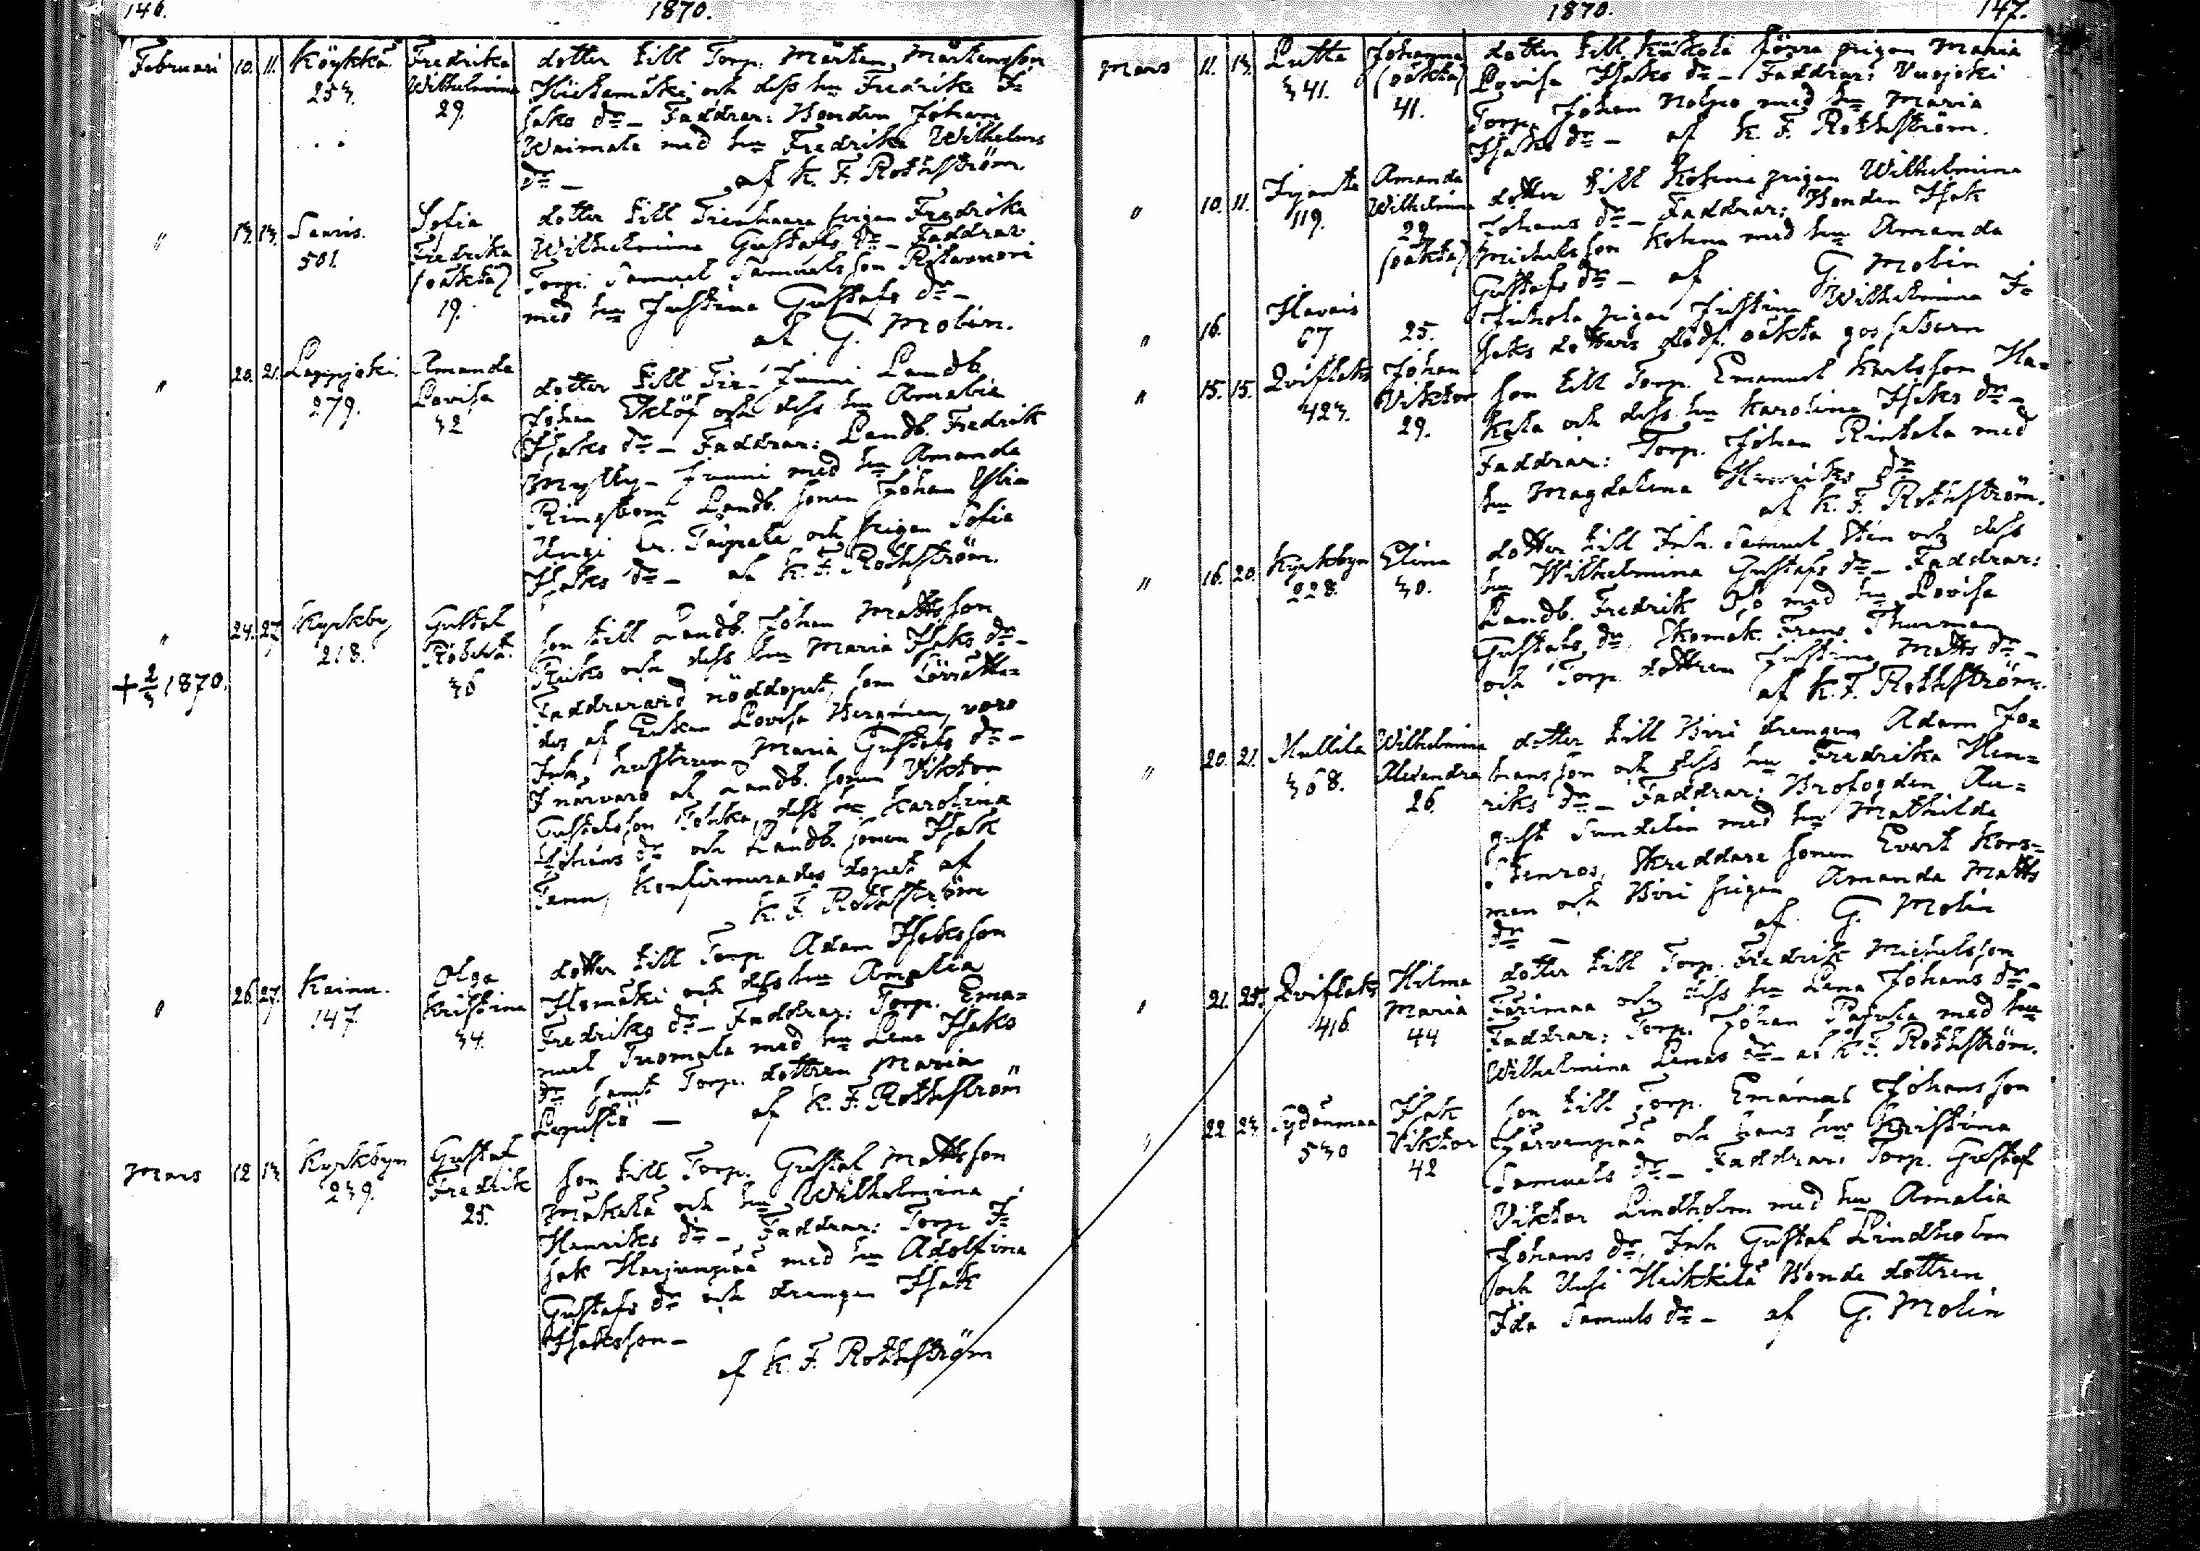 146. 1870.
Februari 10. 11. Köykkä Fredrika dotter till Torp. Mårten Mårtensson
253. Wilhelmina och dess hu Fredrika I=
29. saks dr _ Faddrar: Bonden Johan
med hu Fredrika Wilhelms
dr _ af K. F. Rothström
" 13. 13. Sauris. Sofia dotter till pigan Fredrika
501. Fredrika Wilhelmina Gustafs dr _ Faddrar
(oäkta) Torp. Samuel Samuelsson
19. med hu Justina Gustafs dr _
af G. Molin.
" 20. 21. Lappijoki Amanda dotter till Junni Landb.
279. Lovisa Johan Eklöf och dess hu Amalia
32 Isaks dr _ Faddrar: Landb. Fredrik
Mylly-Junni med hu Amanda
Ringbom Landb. sonen Johan Yli
och pigan Sofia
Isaks dr _ af K. F. Rothström.
" 24. 27. Kyrkby Gustaf son till Landb. Johan Mattsson
218. Robert. och dess hu Maria Isaks dr _
36 Faddrar vid nöddopet, som förrätta=
+ 2/3 1870. des af Enkan Lovisa Bergman, voro
Inh. hustrun Maria Gustafs dr _
I närvaro af Landb. sonen Viktor
Gustafsson dess hu Karolina
Johans dr och Landb. sonen Isak
konfirmerades dopet af
K. F. Rothström
" 26. 27. Kainu. Olga dotter till Torp. Adam Isaksson
147. Kristina och dess hu Amalia
34. Fredriks dr _ Faddrar: Torp. Ema=
nuel Tuomala med hu Lena Isaks
dr samt Torp. dottren Maria
Lepistö _ af K. F. Rothström
Mars 12 13 Kyrkbyn Gustaf son till Torp. Gustaf Mattsson
239. Fredrik Mäkelä och hu Wilhelmina
25. Henriks dr _ Faddrar: Torp I=
sak Harjunpää med hu Adolfina
Gustafs dr och drengen Isak
Isaksson _
af K. F. Rothström
1870. 147.
Mars 11. 13. Lutta Johanna dotter till pigan Maria
341. (oäkta) Lovisa Isaks dr _ Faddrar: Vuojoki
41. Torp. Johan med hu Maria
Isaks dr _ af K. F. Rothström.
" 10. 11. Amanda dotter till pigan Wilhelmina
119. Wilhelmina Johans dr _ Faddrar: Bonden Isak
29 Michelsson med hu Amanda
(oäkta) Gustafs dr _ af G. Molin
" 16. Havais pigan Justina Wilhelmina I=
67 25. saks dotters dödf. oäkta gossebarn
" 15. 15. Qviflaks Johan son till Torp. Emanuel Karlsson Ha=
423. Viktor kala och dess hu Karolina Isaks dr _
29. Faddrar: Torp. Johan Rintala med
hu Magdalena Henriks dr
af K. F. Rothström.
" 16. 20. Kyrkbyn Elina dotter till Inh. Samuel och dess
228. 30. hu Wilhelmina Gustafs dr _ Faddrar:
Landb. Fredrik med hu Lovisa
Gustafs dr, Skomak. Frans Thurman
och Torp. dottren Justina Matts dr _
af K. F. Rothström.
" 20. 21. Mullila Wilhelmina dotter till drengen Adam Jo=
368. Alexandra hansson och dess hu Fredrika Hen=
26. riks dr _ Faddrar: Brofogden Au=
gust Sundelin med hu Mathilda
Tenros, Skreddare sonen Evert Kors=
man och pigan Amanda Matts
dr _ af G. Molin
" 21. 25. Qviflaks Hilma dotter till Torp. Fredrik Michelsson
416. Maria och dess hu Lena Johans dr _
44 Faddrar: Torp. Johan med hu
Wilhelmina dr _ af K. F. Rothström.
" 22 23 Sydänmaa Isak son till Torp. Emanuel Johansson
530 Viktor Järvenpää och hans hu Kristina
42 Samuels dr _ Faddrar: Torp. Gustaf
Viktor Lindholm med hu Amalia
Johans dr, Inh. Gustaf Lindholm
och Uusi Heikkilä Bonde dottren
Ida Samuels dr _ af G. Molin